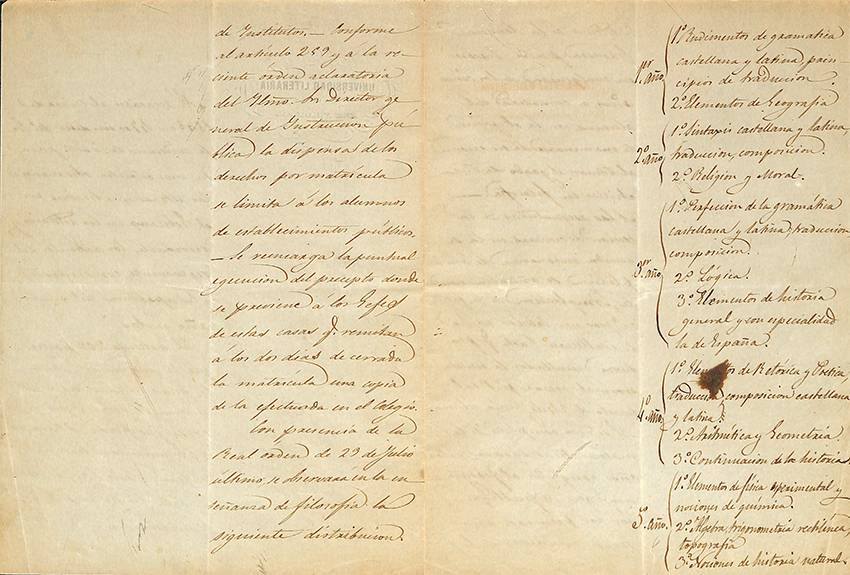 de Institutos.— Conforme
al artículo 259 y a la re-
ciente orden aclaratoria
del Ylmo. Sr. Director ge-
neral de Instruccion pú-
blica, la dispensa de los
derechos por matrícula
se limita á los alumnos
de establecimientos públicos.
— Se reencarga la puntual
egecucion del precepto donde
se previene á los Gefes
de estas casas q.e remitan
a los dos dias de cerrada
la matrícula una copia
de la efectuada en el Colegio.
Con presencia de la
Real orden de 29 de julio
último, se observará en la en-
señanza de filosofia la
siguiente distribucion.
UNIVERSIDAD LITERARIA
1.er año.
1.º Rudimentos de gramatica
castellana y latina, prin-
cipios de traduccion.
2.º Elementos de Geografia
2.º año.
1.º Sintaxis castellana y latina,
traduccion, composicion.
2.º Religion y Moral.
3.er año.
1.º Perfeccion de la gramática
castellana y latina, traduccion
composicion.
2.º Lógica.
3.º Elementos de historia
general y con especialidad
la de España.
4.º año.
1.º Elementos de Retórica y Poética,
traduccion, composicion castellana
y latina.
2.º Aritmética y Geometría.
3.º Continuacion de la historia.
5.º año.
1.º Elementos de física esperimental y
nociones de química.
2.º Algebra, trigonometría rectilínea,
topografía
3.º Nociones de historia natural.